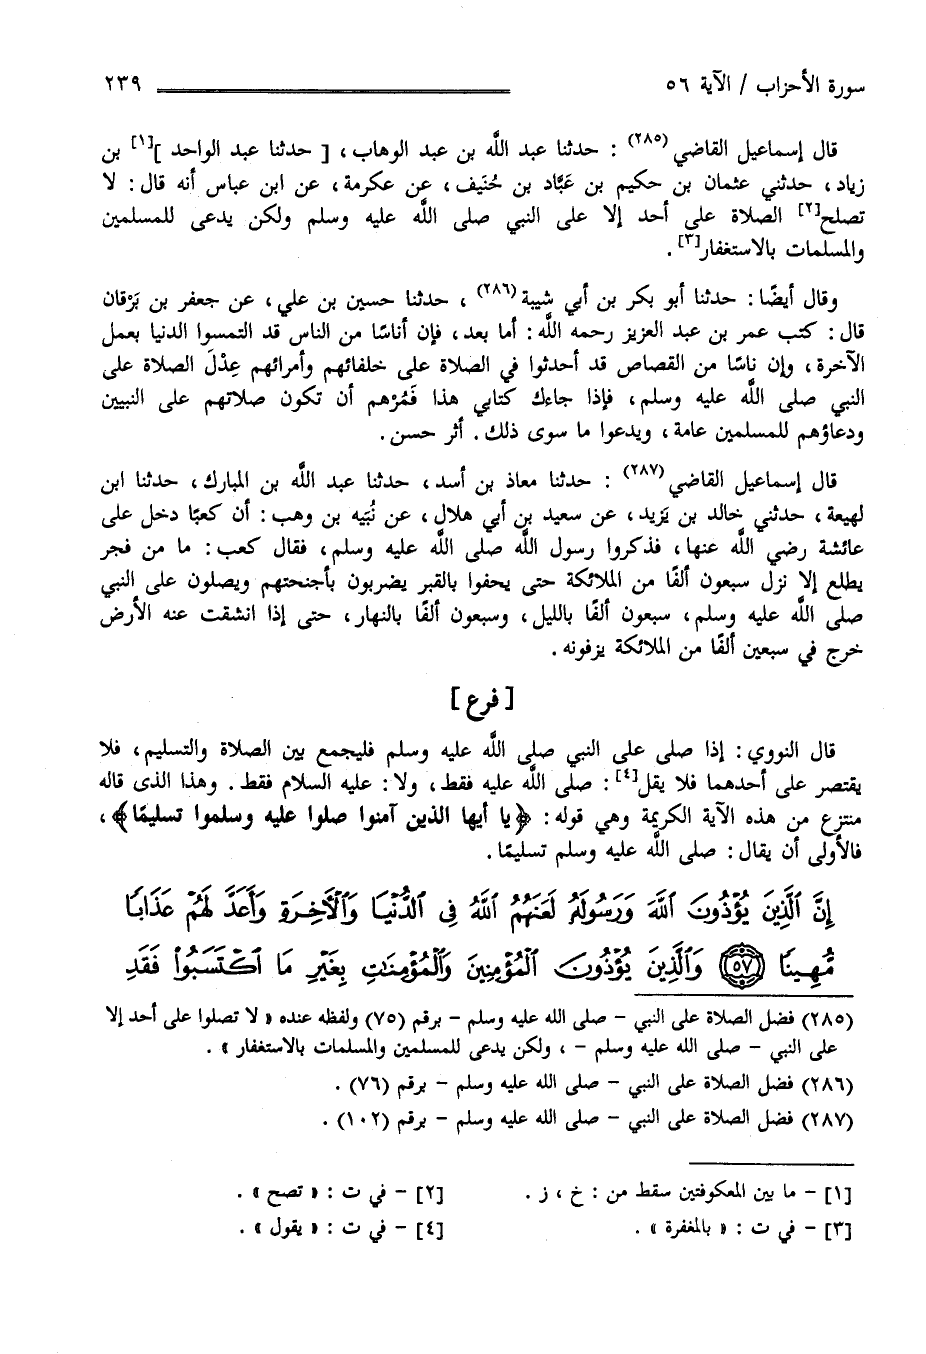 سورة الأحزاب / الآية ٥٦ ٢٣٩
قال إسماعيل القاضي (٢٨٥) : حدثنا عبد اللَّه بن عبد الوهاب ، [ حدثنا عبد الواحد ][١] بن
زياد ، حدثني عثمان بن حكيم بن عَبَّاد بن حُنَيف ، عن عكرمة ، عن ابن عباس أنه قال : لا
تصلح[٢] الصلاة على أحد إلا على النبي صلى اللَّه عليه وسلم ولكن يدعى للمسلمين
والمسلمات بالاستغفار[٣] .
وقال أيضًا : حدثنا أبو بكر بن أبي شيبة (٢٨٦) ، حدثنا حسين بن علي ، عن جعفر بن بَرْقان
قال : كتب عمر بن عبد العزيز رحمه اللَّه : أما بعد ، فإن أناسًا من الناس قد التمسوا الدنيا بعمل
الآخرة ، وإن ناسًا من القصاص قد أحدثوا في الصلاة على خلفائهم وأمرائهم عِدْلَ الصلاة على
النبي صلى اللَّه عليه وسلم ، فإذا جاءك كتابي هذا فَمُرْهم أن تكون صلاتهم على النبيين
ودعاؤهم للمسلمين عامة ، ويدعوا ما سوى ذلك . أثر حسن .
قال إسماعيل القاضي (٢٨٧) : حدثنا معاذ بن أسد ، حدثنا عبد اللَّه بن المبارك ، حدثنا ابن
لهيعة ، حدثني خالد بن يَزيد ، عن سعيد بن أبي هلال ، عن نُبَيه بن وهب : أن كعبًا دخل على
عائشة رضي اللَّه عنها ، فذكروا رسول اللَّه صلى اللَّه عليه وسلم ، فقال كعب : ما من فجر
يطلع إلا نزل سبعون ألفًا من الملائكة حتى يحفوا بالقبر يضربون بأجنحتهم ويصلون على النبي
صلى اللَّه عليه وسلم ، سبعون ألفًا بالليل ، وسبعون ألفًا بالنهار ، حتى إذا انشقت عنه الأرض
خرج في سبعين ألفًا من الملائكة يزفونه .
[ فرع ]
قال النووي : إذا صلى على النبي صلى اللَّه عليه وسلم فليجمع بين الصلاة والتسليم ، فلا
يقتصر على أحدهما فلا يقل[٤] : صلى اللَّه عليه فقط ، ولا : عليه السلام فقط . وهذا الذى قاله
منتزع من هذه الآية الكريمة وهي قوله : ﴿ يا أيها الذين آمنوا صلوا عليه وسلموا تسليمًا ﴾ ،
فالأولى أن يقال : صلى اللَّه عليه وسلم تسليمًا .
إِنَّ ٱلَّذِينَ يُؤْذُونَ ٱللَّهَ وَرَسُولَهُۥ لَعَنَهُمُ ٱللَّهُ فِى ٱلدُّنْيَا وَٱلْـَٔاخِرَةِ وَأَعَدَّ لَهُمْ عَذَابًا
مُّهِينًا ٥٧ وَٱلَّذِينَ يُؤْذُونَ ٱلْمُؤْمِنِينَ وَٱلْمُؤْمِنَٰتِ بِغَيْرِ مَا ٱكْتَسَبُوا۟ فَقَدِ
(٢٨٥) فضل الصلاة على النبي - صلى الله عليه وسلم - برقم (٧٥) ولفظه عنده « لا تصلوا على أحد إلا
على النبي - صلى الله عليه وسلم - ، ولكن يدعى للمسلمين والمسلمات بالاستغفار » .
(٢٨٦) فضل الصلاة على النبي - صلى الله عليه وسلم - برقم (٧٦) .
(٢٨٧) فضل الصلاة على النبي - صلى الله عليه وسلم - برقم (١٠٢) .
[١] - ما بين المعكوفتين سقط من : خ ، ز . [٢] - في ت : « تصح » .
[٣] - في ت : « بالمغفرة » . [٤] - في ت : « يقول » .